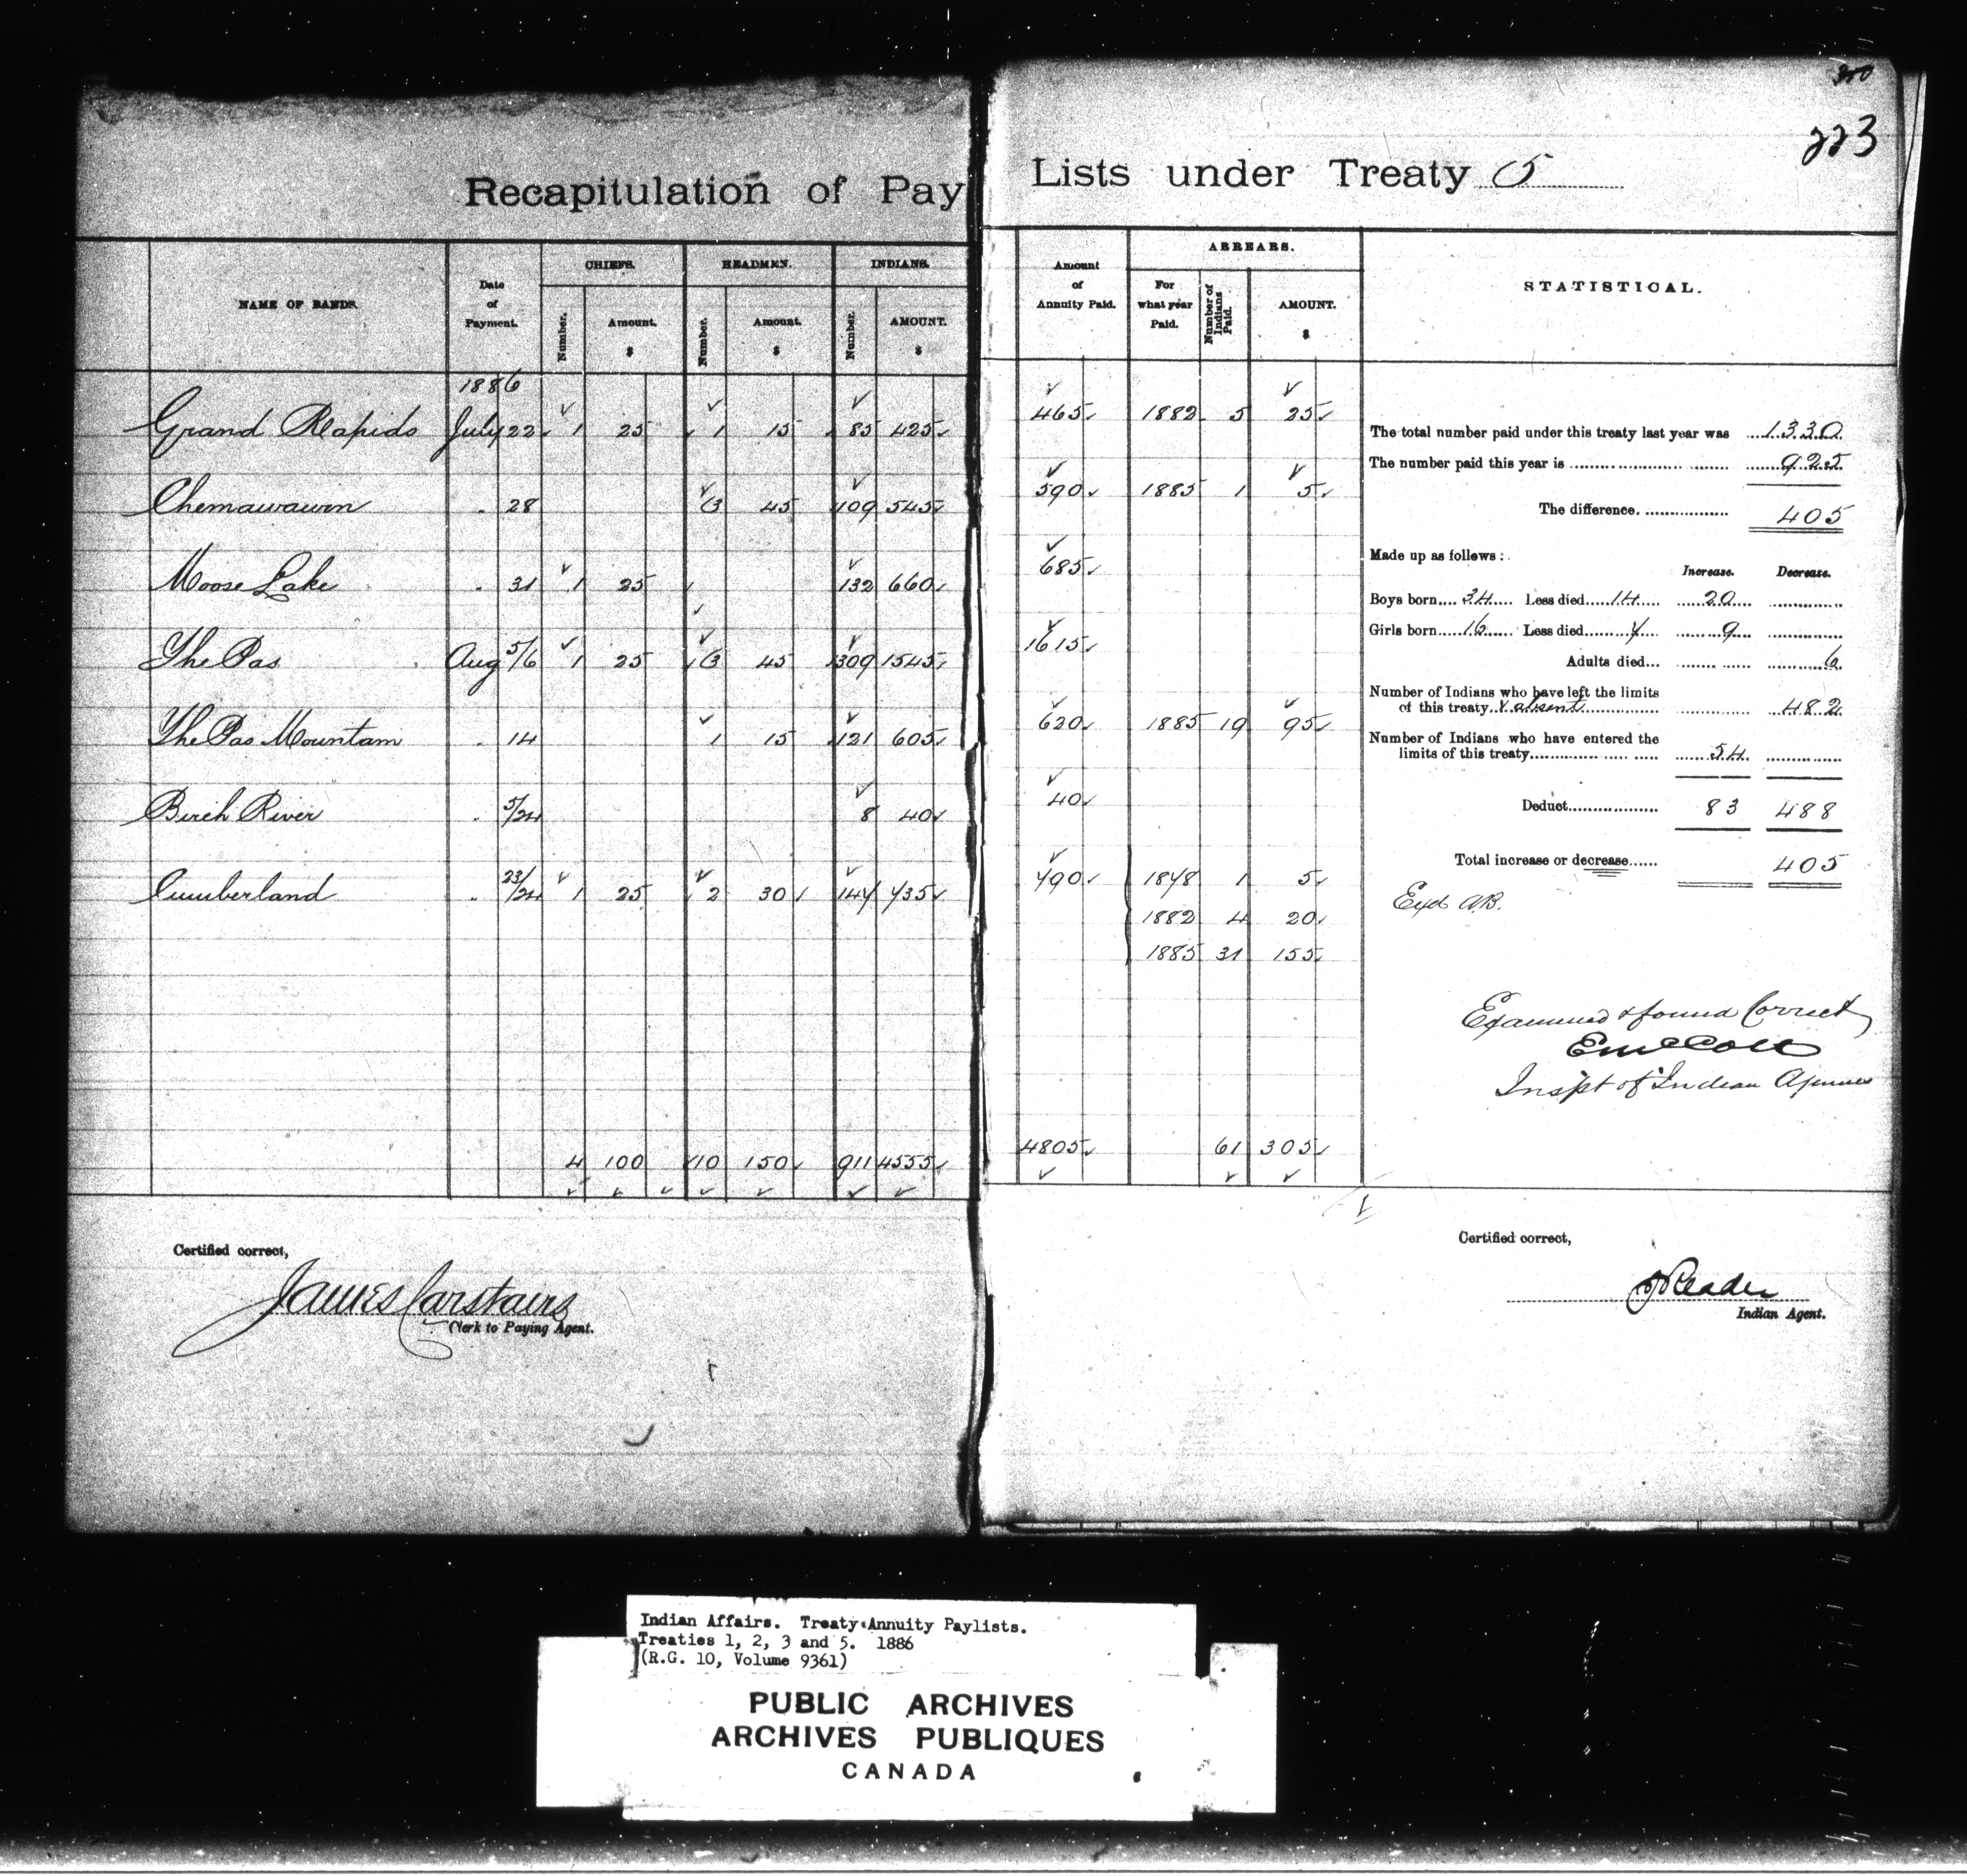 223
Recapitulation of Pay Lists under Treaty 5
NAME OF BANDS. Date of Payment. CHIEFS. HEADMEN. INDIANS. Amount of Annuity Paid. ARREARS. STATISTICAL.
Number. Amount. $ Number. Amount. $ Number. AMOUNT. $ For what year Paid. Number of Indians Paid. AMOUNT. $
1886
Grand Rapids July 22 1 25 1 15 85 425 465 1882 5 25
Chemawawin " 28 3 45 109 545 590 1885 1 5
Moose Lake " 31 1 25 132 660 685
The Pas Aug 5/6 1 25 3 45 309 1545 1615
The Pas Mountain " 14 1 15 121 605 620 1885 19 95
Birch River " 5/24 8 40 40
Cumberland " 23/24 1 25 2 30 147 735 790 1878 1 5
1882 4 20
1885 31 155
4 100 10 150 911 4555 4805 61 305
The total number paid under this treaty last year was 1330
The number paid this year is 925
The difference. 405
Made up as follows:
Increase. Decrease.
Boys born 34 Less died 14 20
Girls born 16 Less died 7 9
Adults died 6
Number of Indians who have left the limits
of this treaty & absent 482
Number of Indians who have entered the
limits of this treaty 54
Deduct 83 488
Total increase or decrease 405
Exd AB.
Examined & found Correct
E McColl
Inspt of Indian Agencies
Certified correct,
James Carstairs
Clerk to Paying Agent.
Certified correct,
J Reader
Indian Agent.
Indian Affairs. Treaty Annuity Paylists.
Treaties 1, 2, 3 and 5. 1886
(R.G. 10, Volume 9361)
PUBLIC ARCHIVES
ARCHIVES PUBLIQUES
CANADA